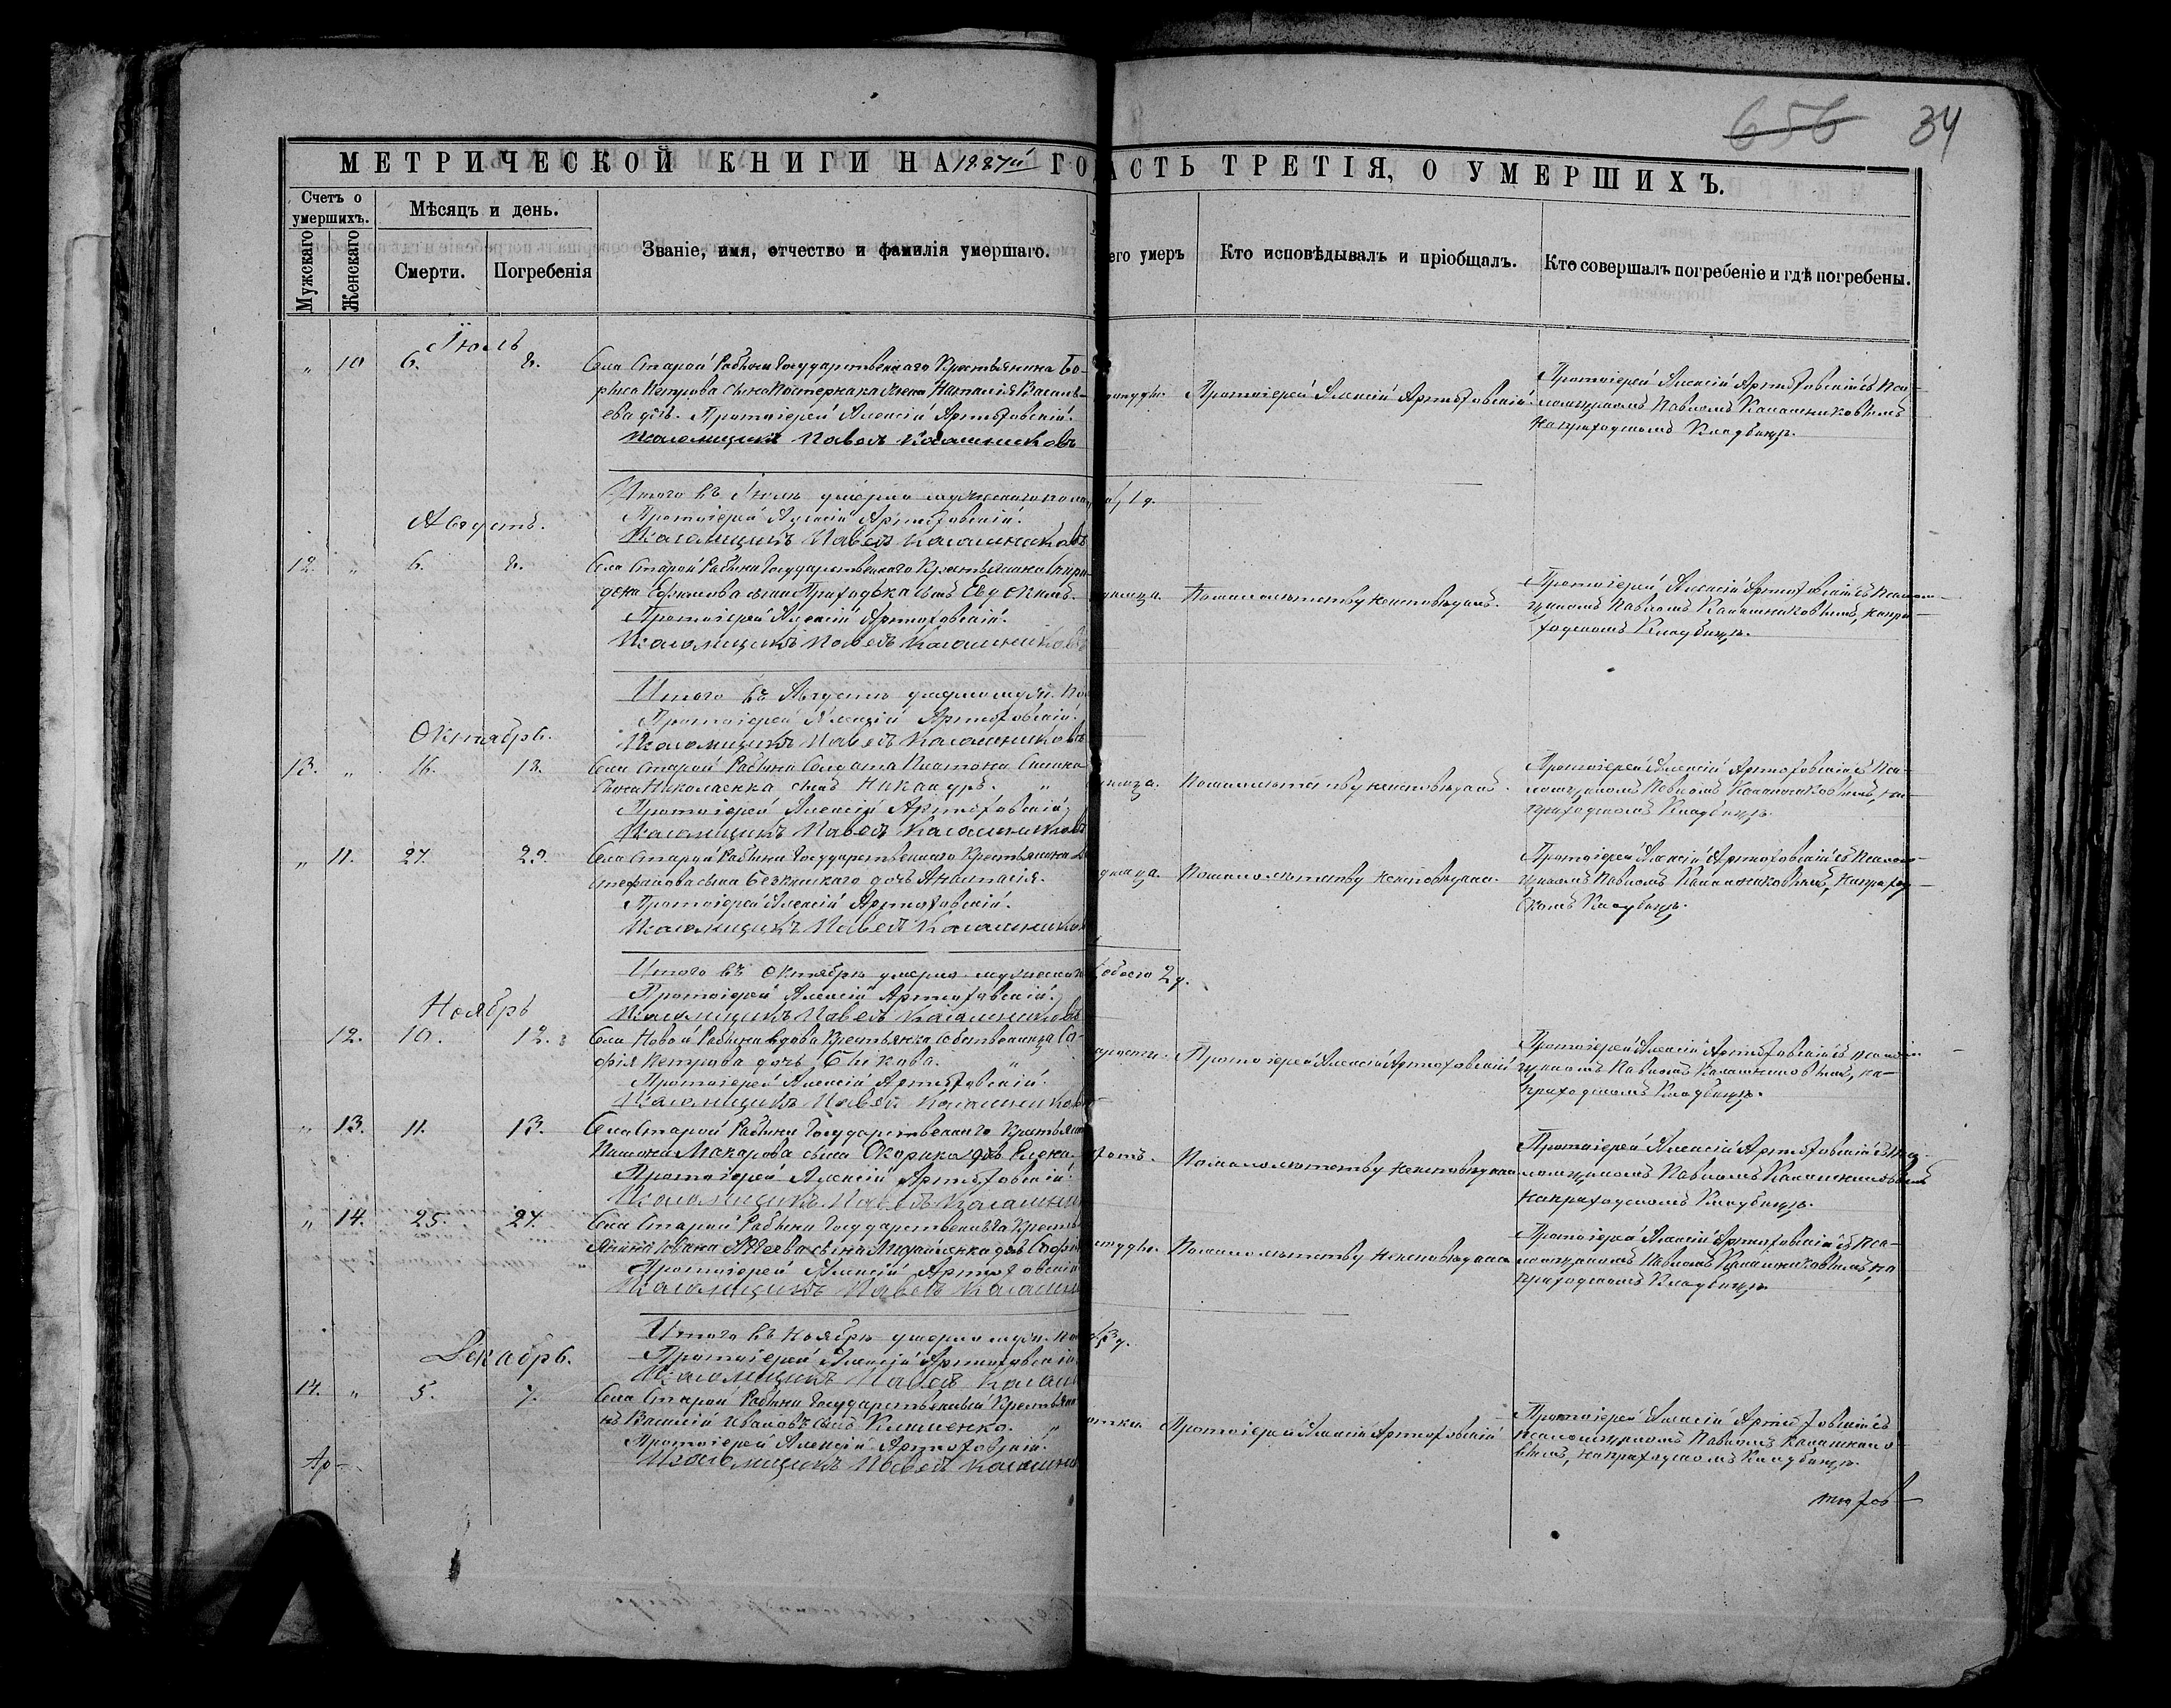 656 34
МЕТРИЧЕСКОЙ КНИГИ НА 1887й ГО АСТЬ ТРЕТІЯ, О УМЕРШИХЪ.
Счетъ о умершихъ.
Мужскаго
Женскаго
Мѣсяцъ и день.
Смерти.
Погребенія
Званіе, имя, отчество и фамилія умершаго.
его умеръ
Кто исповѣдывалъ и пріобщалъ.
Кто совершалъ погребеніе и гдѣ погребены.
Іюль
„ 10 6. 8.
Села Старой Рябины Государственнаго Крестьянина Бо-
риса Петрова сына Пастернака жена Наталія Василь-
ева дочь. Протоіерей Алексій Артюховскій.
Псаломщикъ Павелъ Калашниковъ
Протоіерей Алексій Артюховскій
Протоіерей Алексій Артюховскій съ Пса-
ломщикомъ Павломъ Калашниковымъ
на приходскомъ Кладбищѣ.
Итого въ Іюлѣ умерло мужескаго пола 1 д.
Протоіерей Алексій Артюховскій.
Псаломщикъ Павелъ Калашниковъ
Августъ.
12. „ 6. 8.
Села Старой Рябины Государственнаго Крестьянина Спири-
дона Ефимова сына Приходька сынъ Евдокимъ.
Протоіерей Алексій Артюховскій.
Псаломщикъ Павелъ Калашниковъ
По малолѣтству неисповѣданъ.
Протоіерей Алексій Артюховскій съ Псалом-
щикомъ Павломъ Калашниковымъ, на при-
ходскомъ Кладбищѣ.
Итого въ Августѣ умерло муж. по
Протоіерей Алексій Артюховскій.
Псаломщикъ Павелъ Калашниковъ
Октябрь.
13. „ 16. 18.
Села Старой Рябины Солдата Платона
Николаенка сынъ Никандръ. „
Протоіерей Алексій Артюховскій
Псаломщикъ Павелъ Калашниковъ
По малолѣтству неисповѣданъ.
Протоіерей Алексій Артюховскій съ Пса-
ломщикомъ Павломъ Калашниковымъ, на
приходскомъ Кладбищѣ.
„ 11. 27. 29.
Села Старой Рябины Государственнаго Крестьянина
Стефанова сына дочь Анастасія.
Протоіерей Алексій Артюховскій.
Псаломщикъ Павелъ Калашников
По малолѣтству неисповѣдана.
Протоіерей Алексій Артюховскій съ Псалом-
щикомъ Павломъ Калашниковымъ, на приход-
скомъ Кладбищѣ.
Итого въ Октябрѣ умерло мужескаго обоего 2 д.
Протоіерей Алексій Артюховскій.
Псаломщикъ Павелъ Калашниковъ
Ноябрь
12. 10. 12.
Села Новой Рябины вдова Крестьянка Собственница Со-
фія Петрова дочь Быкова. „
Протоіерей Алексій Артюховскій.
Псаломщикъ Павелъ Калашников
Протоіерей Алексій Артюховскій
Протоіерей Алексій Артюховскій съ Псалом-
щикомъ Павломъ Калашниковымъ, на-
приходскомъ Кладбищѣ.
„ 13. 11. 13.
Села Старой Рябины Государственнаго Крестьян
Макарова сына Скорика дочь Елена.
Протоіерей Алексій Артюховскій.
Псаломщикъ Павелъ Калашни
По малолѣтству неисповѣдана
Протоіерей Алексій Артюховскій съ Пса-
ломщикомъ Павломъ Калашниковымъ
на приходскомъ Кладбищѣ.
„ 14. 25. 27.
Села Старой Рябины Государственнаго Кресть
янина Ивана сына Михайленка дочь Софі
Протоіерей Алексій Артюховскій
Псаломщикъ Павелъ Калашн
По малолѣтству неисповѣдана
Протоіерей Алексій Артюховскій съ Пса-
ломщикомъ Павломъ Калашниковымъ на
приходскомъ Кладбищѣ.
Итого въ Ноябрѣ умерло муж. по 3 д.
Протоіерей Алексій Артюховскій
Псаломщикъ Павелъ Калаш
Декабрь.
14. „ 5. 7.
Села Старой Рябины Государственный Крестьяни
нъ Василій Ивановъ сынъ Клименко. „
Протоіерей Алексій Артюховскій.
Псаломщикъ Павелъ Калашни
Протоіерей Алексій Артюховскій
Протоіерей Алексій Артюховскій съ
Псаломщикомъ Павломъ Калашнико-
вымъ, на приходскомъ Кладбищѣ.
Ар-
тюхов-